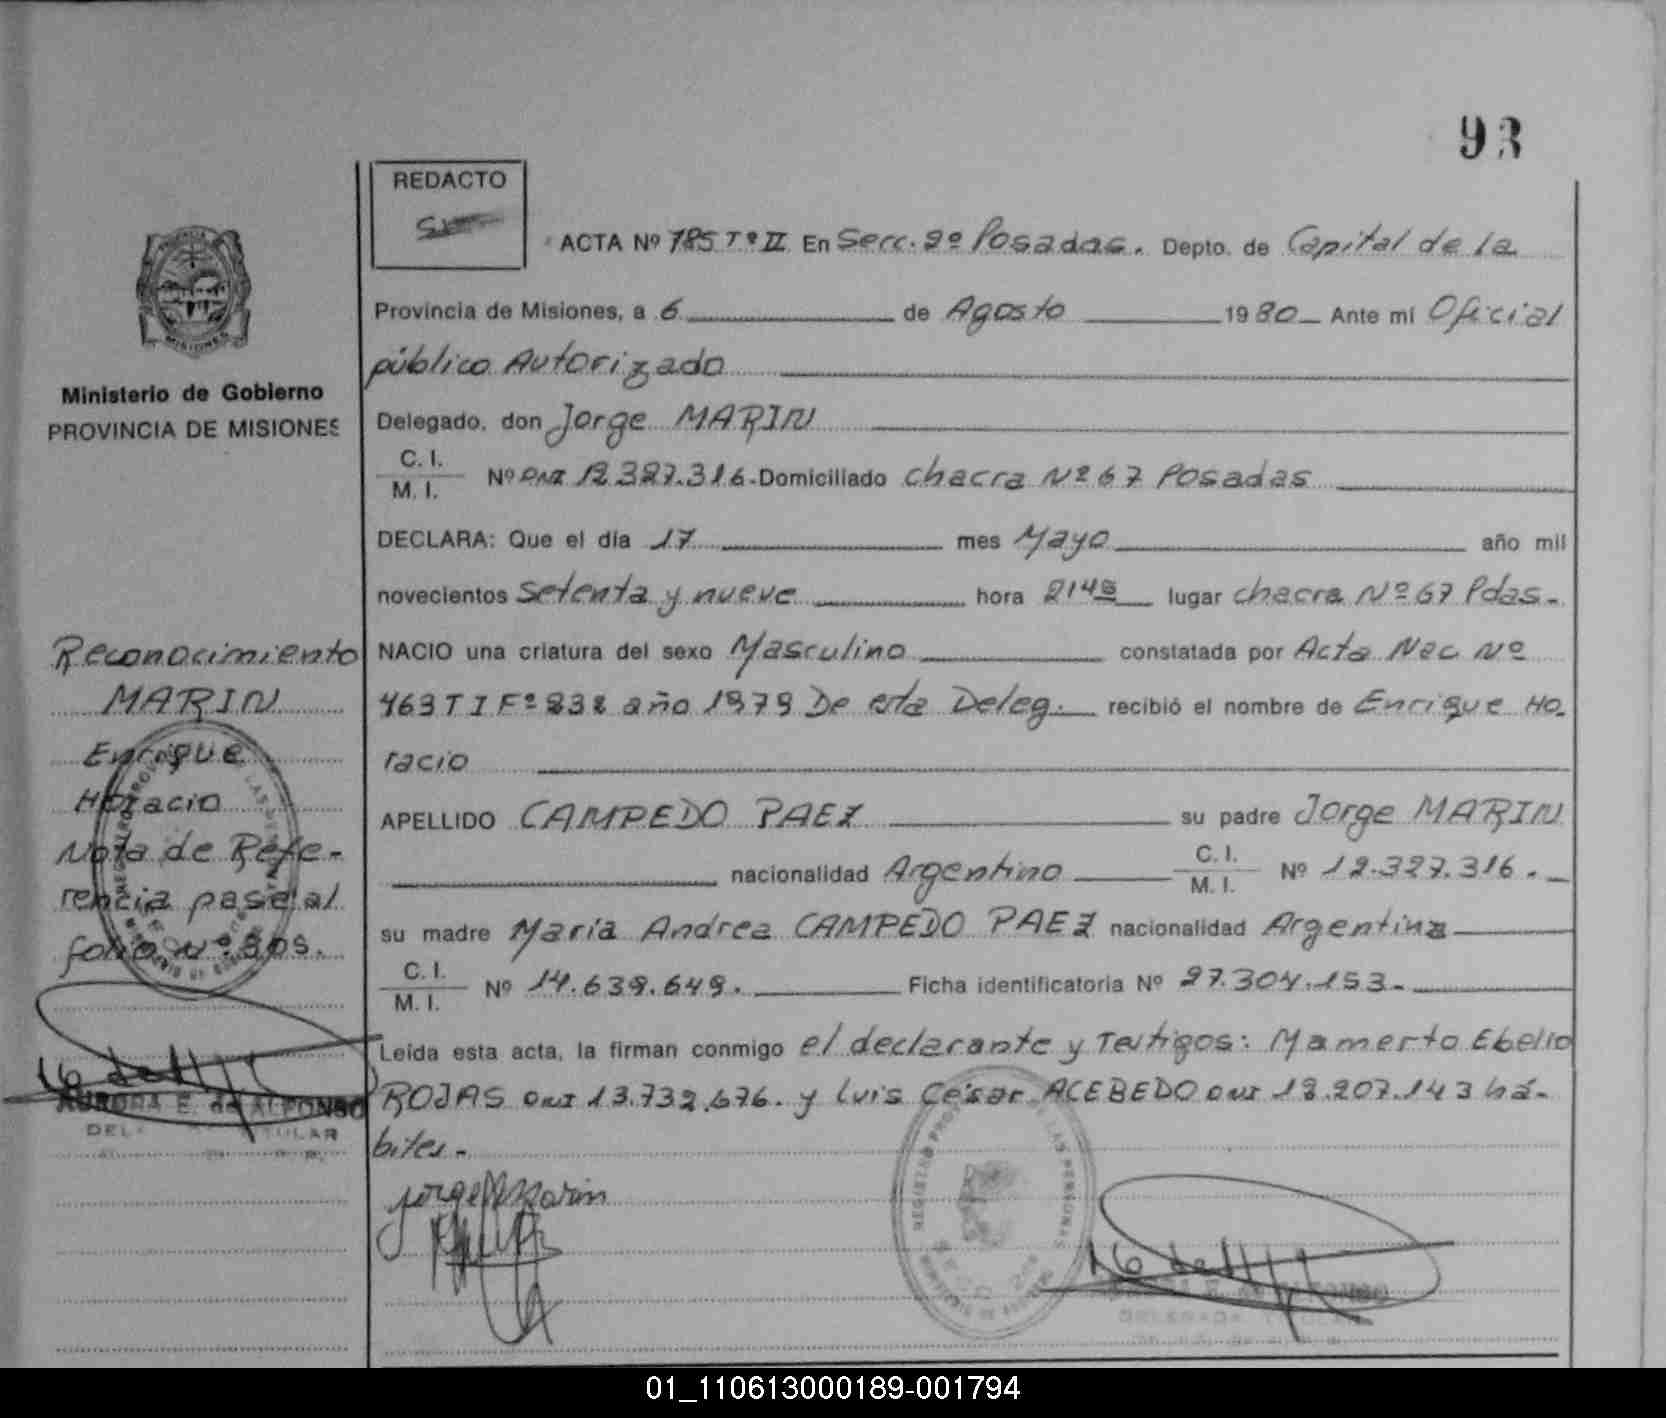 93
REDACTO
ACTA Nº 785 Tº II En Secc. 2º Posadas. Depto. de Capital de la
Provincia de Misiones, a 6 de Agosto 1980 Ante mi Oficial
público Autorizado
Delegado, don Jorge MARIN
C. I.
M. I.
Nº DNI 12.327.316. Domiciliado chacra Nº 67 Posadas
DECLARA: Que el día 17 mes Mayo año mil
novecientos setenta y nueve hora 21 45 lugar chacra Nº 67 Pdas.
NACIO una criatura del sexo Masculino constatada por Acta Nac Nº
463 T I Fº 232 año 1979 De esta Deleg. recibió el nombre de Enrique Ho-
racio
APELLIDO CAMPEDO PAEZ su padre Jorge MARIN
nacionalidad Argentino C. I.
M. I. Nº 12.327.316.
su madre María Andrea CAMPEDO PAEZ nacionalidad Argentina
C. I.
M. I.
Nº 14.639.649. Ficha identificatoria Nº 27.304.153.
Leída esta acta, la firman conmigo el declarante y Testigos: Mamerto Ebelio
ROJAS DNI 13.732.676. y Luis César ACEBEDO DNI 12.207.143 há-
biles.
Jorge Marin
MISIONES
Ministerio de Gobierno
PROVINCIA DE MISIONES
Reconocimiento
MARIN
Enrique
Horacio
Nota de Refe-
rencia pase al
folio Nº 308.
AURORA E. de ALFONSO
DELEGADA TITULAR
01_110613000189-001794